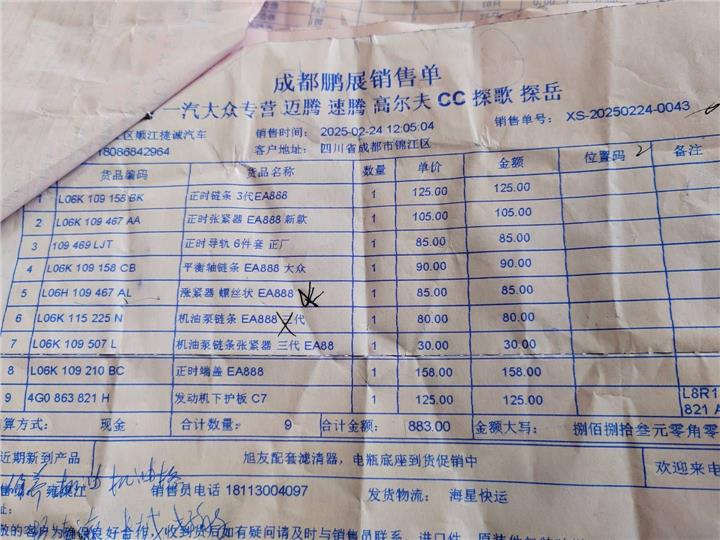 成都鹏展销售单
一汽大众专营 迈腾 速腾 高尔夫 CC 探歌 探岳
区锦江捷诚汽车 销售时间: 2025-02-24 12:05:04 销售单号: XS-20250224-0043
18086842964 客户地址: 四川省成都市锦江区
货品编码 货品名称 数量 单价 金额 位置码 备注
1 L06K 109 158 BK 正时链条 3代EA888 1 125.00 125.00
2 L06K 109 467 AA 正时张紧器 EA888 新款 1 105.00 105.00
3 109 469 LJT 正时导轨 6件套 正厂 1 85.00 85.00
4 L06K 109 158 CB 平衡轴链条 EA888 大众 1 90.00 90.00
5 L06H 109 467 AL 涨紧器 螺丝状 EA888 1 85.00 85.00
6 L06K 115 225 N 机油泵链条 EA888 三代 1 80.00 80.00
7 L06K 109 507 L 机油泵链条张紧器 三代 EA88 1 30.00 30.00
8 L06K 109 210 BC 正时端盖 EA888 1 158.00 158.00
9 4G0 863 821 H 发动机下护板 C7 1 125.00 125.00 L8R1 821 A
算方式: 现金 合计数量: 9 合计金额: 883.00 金额大写: 捌佰捌拾叁元零角零
近期新到产品 旭友配套滤清器，电瓶底座到货促销中 欢迎来电
销售员电话 18113004097 发货物流: 海星快运